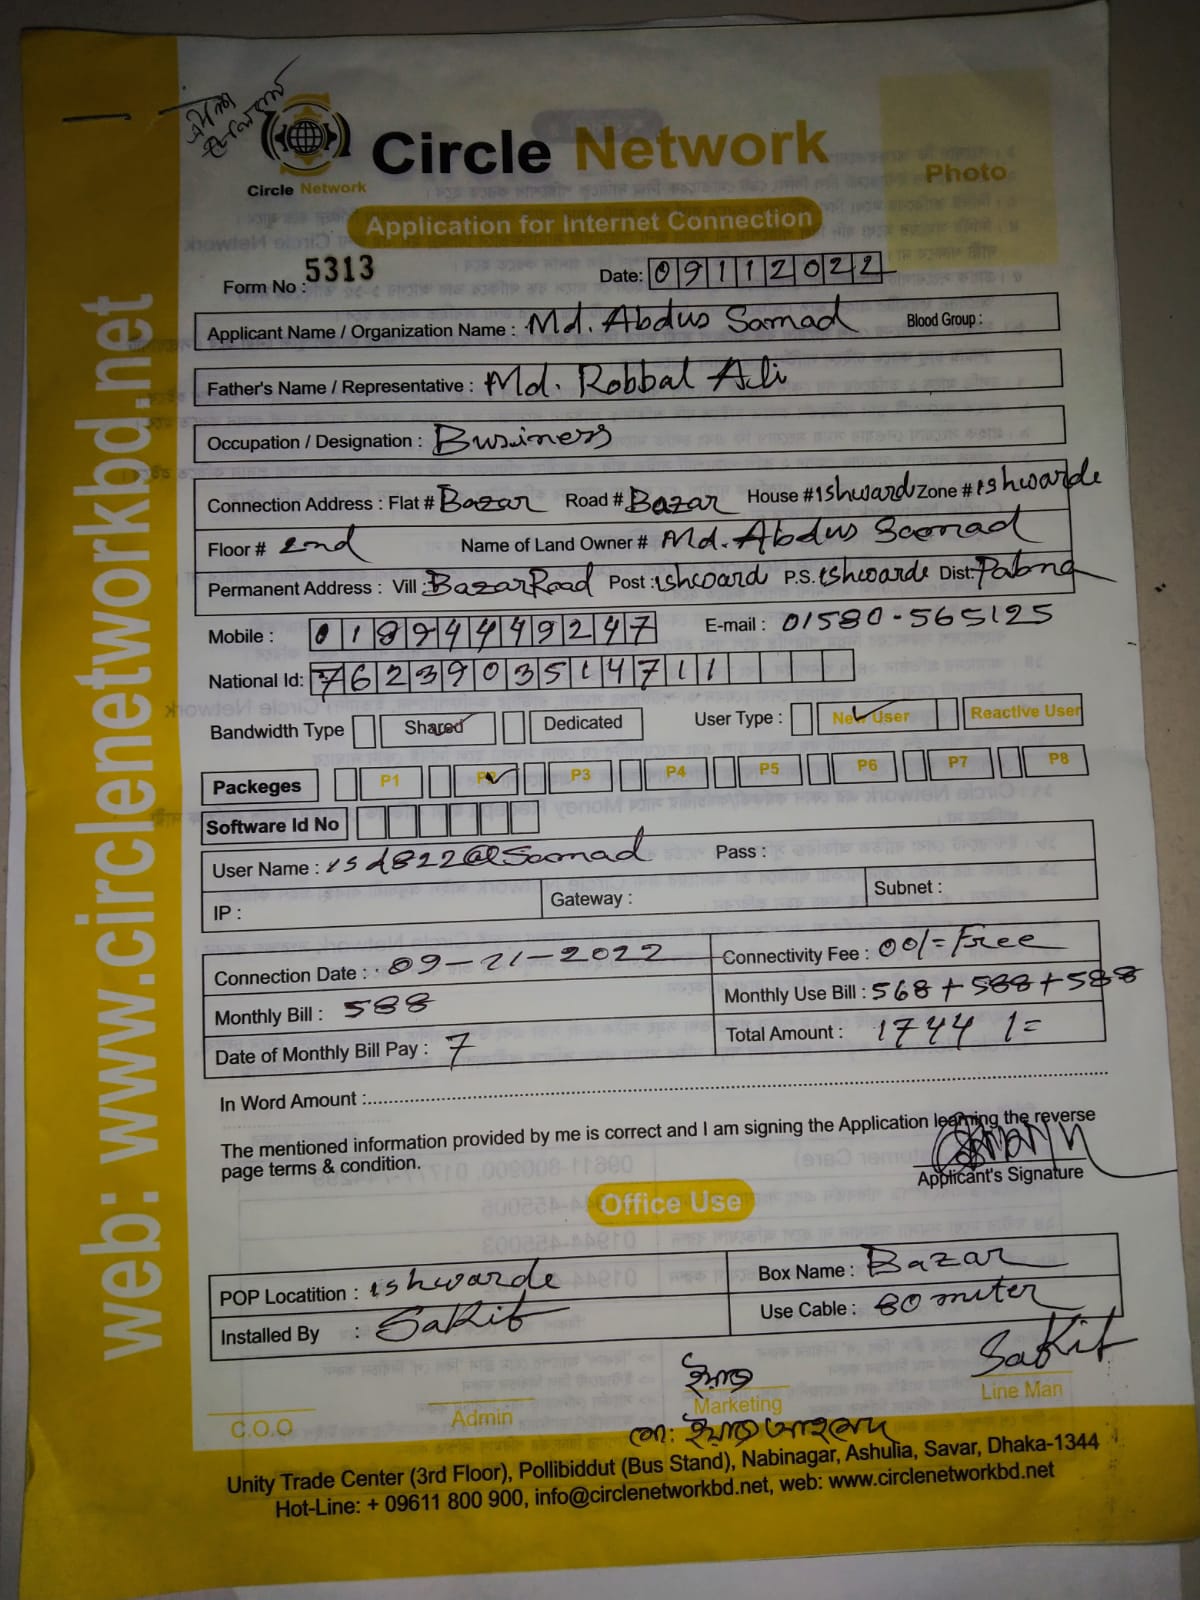 Circle Network
Circle Network
Photo
Application for Internet Connection
Form No : 5313
Date: 09112022
Applicant Name / Organization Name : Md. Abdus Samad Blood Group :
Father's Name / Representative : Md. Robbal Ali
Occupation / Designation : Business
Connection Address : Flat # Bazar Road # Bazar House # ishward Zone # ishwarde
Floor # 2nd Name of Land Owner # Md. Abdus Samad
Permanent Address : Vill : Bazar Road Post : ishward P.S. ishwarde Dist: Pabna
Mobile : 01894449247 E-mail : 01580-565125
National Id: 7623903514711
Bandwidth Type Shared Dedicated User Type : New User Reactive User
Packeges P1 P2 P3 P4 P5 P6 P7 P8
Software Id No
User Name : isd822@Samad Pass :
IP : Gateway : Subnet :
Connection Date : 09-21-2022 Connectivity Fee : 00/= Free
Monthly Bill : 588 Monthly Use Bill : 568 + 588 + 588
Date of Monthly Bill Pay : 7 Total Amount : 1744 /=
In Word Amount :
The mentioned information provided by me is correct and I am signing the Application learning the reverse
page terms & condition.
Applicant's Signature
Office Use
POP Locatition : ishwarde Box Name : Bazar
Installed By : Sakib Use Cable : 80 miter
Sakib
C.O.O Admin Marketing Line Man
Unity Trade Center (3rd Floor), Pollibiddut (Bus Stand), Nabinagar, Ashulia, Savar, Dhaka-1344
Hot-Line: + 09611 800 900, info@circlenetworkbd.net, web: www.circlenetworkbd.net
web: www.circlenetworkbd.net